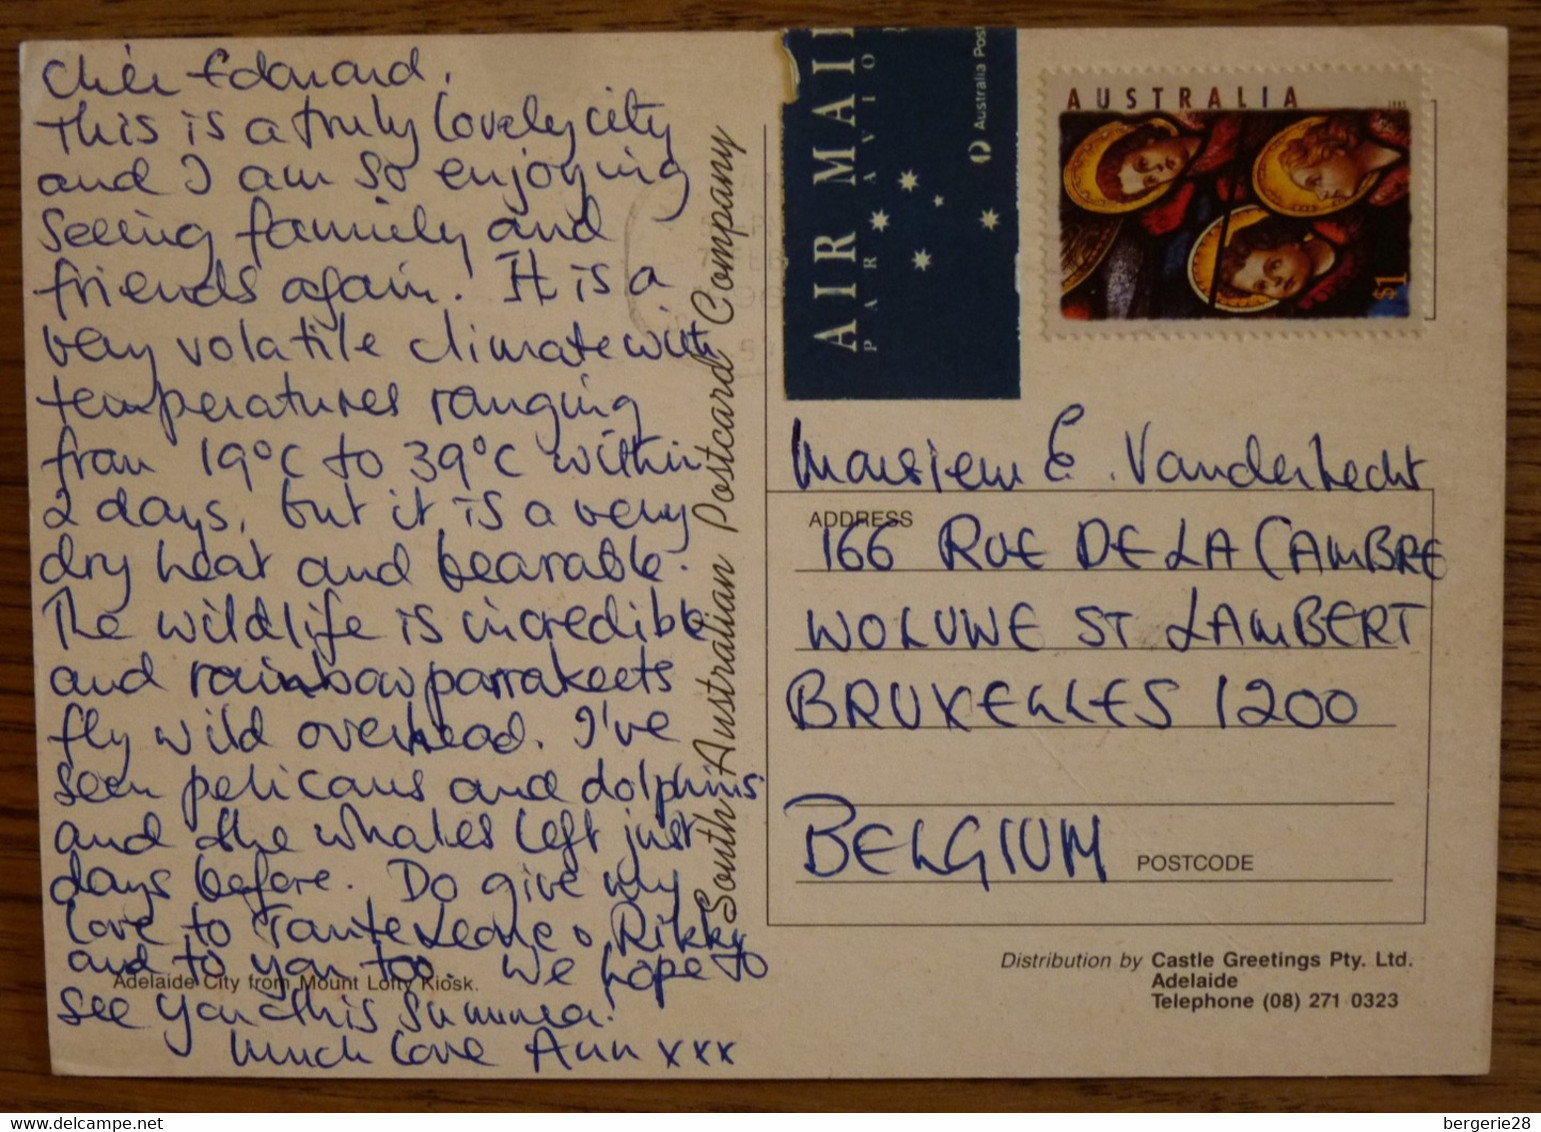 Cher Edouard,
This is a truly lovely city
and I am so enjoying
seeing family and
friends again. It is a
very volatile climate with
temperatures ranging
from 19°C to 39°C within
2 days, but it is a very
dry heat and bearable.
The wildlife is incredible
and rainbow parrakeets
fly wild overhead. I've
seen pelicans and dolphins
and the whales left just
days before. Do give my
love to Tante Leone & Rikky
and to you too. We hope to
see you this summer!
Much love Ann xxx
Adelaide City from Mount Lofty Kiosk.
South Australian Postcard Company
AIR MAIL
PAR AVION
Australia Post
AUSTRALIA
$1
Monsieur E. Vanderhecht
ADDRESS
166 RUE DE LA CAMBRE
WOLUWE ST LAMBERT
BRUXELLES 1200
BELGIUM
POSTCODE
Distribution by Castle Greetings Pty. Ltd.
Adelaide
Telephone (08) 271 0323
bergerie28